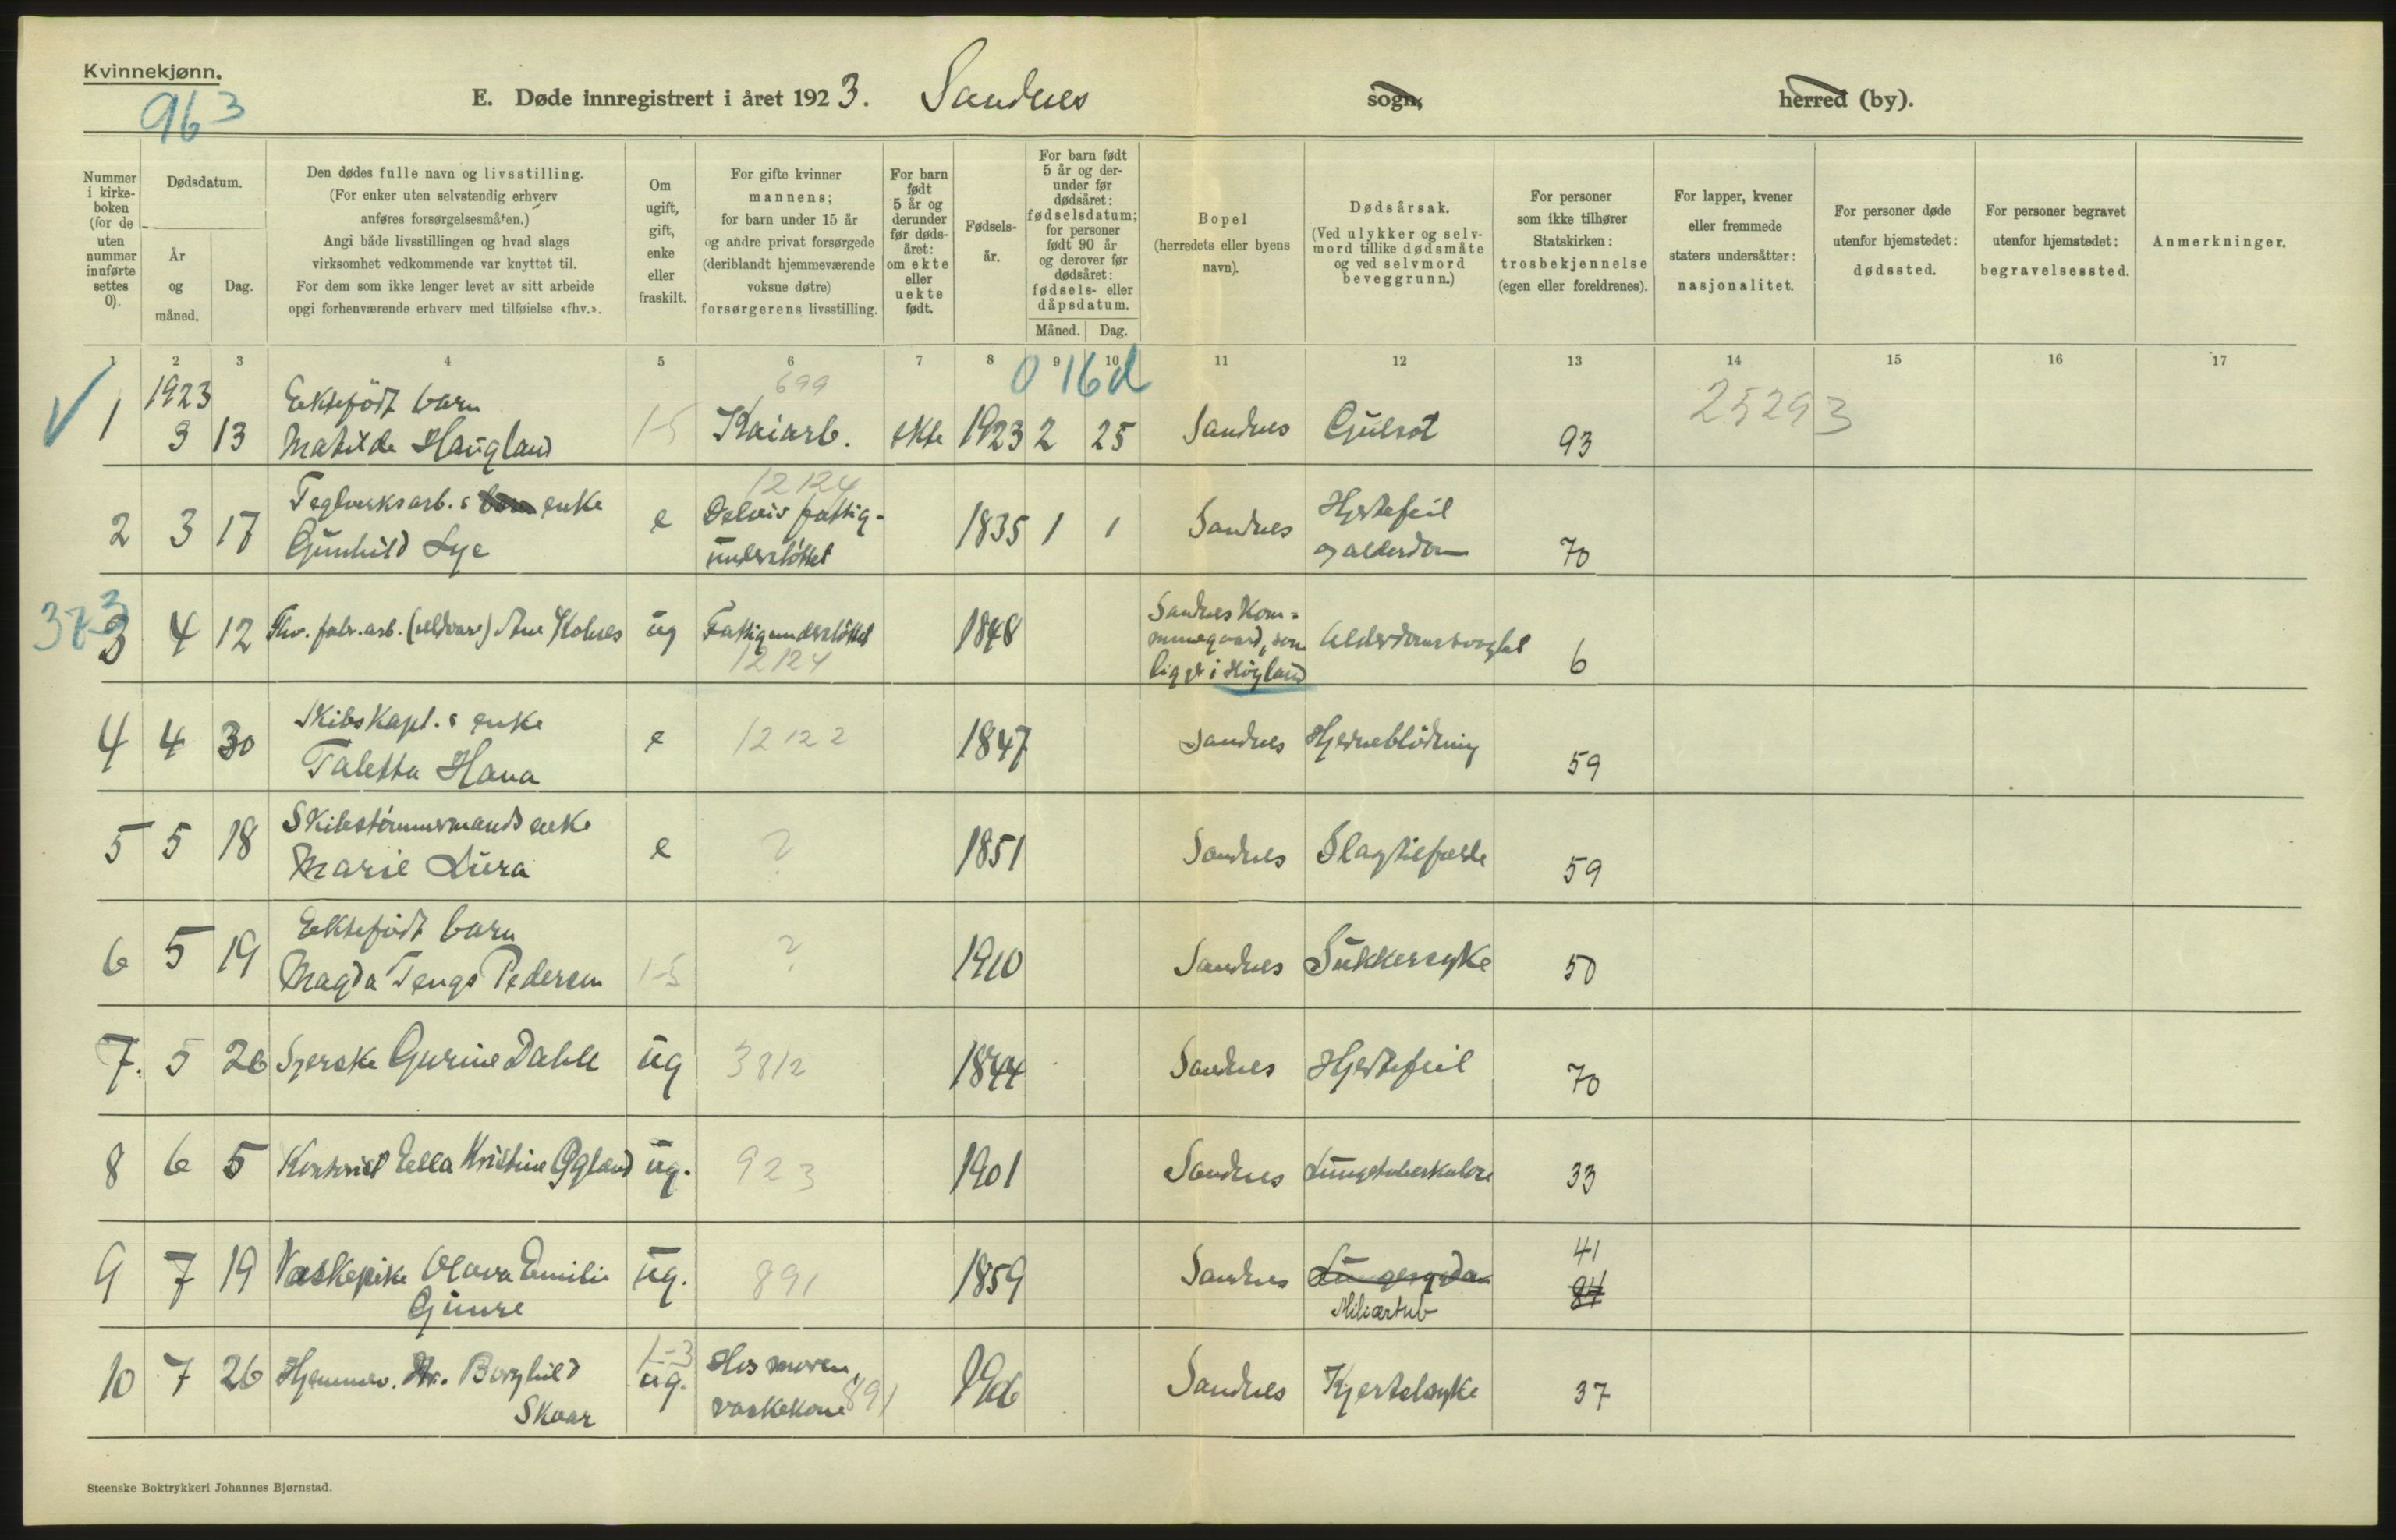 Kvinnekjønn.
963
E. Døde innregistrert i året 1923. Sandnes sogn, herred (by).
Nummer i kirkeboken (for de uten nummer innførte settes 0).
Dødsdatum.
År og måned.
Dag.
Den dødes fulle navn og livsstilling.
(For enker uten selvstendig erhverv anføres forsørgelsesmåten.)
Angi både livsstillingen og hvad slags virksomhet vedkommende var knyttet til.
For dem som ikke lenger levet av sitt arbeide opgi forhenværende erhverv med tilføielse «fhv.».
Om ugift, gift, enke eller fraskilt.
For gifte kvinner mannens; for barn under 15 år og andre privat forsørgede (deriblandt hjemmeværende voksne døtre) forsørgerens livsstilling.
For barn født 5 år og derunder før dødsåret: om ekte eller uekte født.
Fødselsår.
For barn født 5 år og derunder før dødsåret: fødselsdatum; for personer født 90 år og derover før dødsåret: fødsels- eller dåpsdatum.
Måned. Dag.
Bopel (herredets eller byens navn).
Dødsårsak.
(Ved ulykker og selvmord tillike dødsmåte og ved selvmord beveggrunn.)
For personer som ikke tilhører Statskirken: trosbekjennelse (egen eller foreldrenes).
For lapper, kvener eller fremmede staters undersåtter: nasjonalitet.
For personer døde utenfor hjemstedet: dødssted.
For personer begravet utenfor hjemstedet: begravelsessted.
Anmerkninger.
1 2 3 4 5 6 7 8 9 10 11 12 13 14 15 16 17
0 16d
1923 Ektefödt barn 699 25293
1 3 13 Matilde Haugland 1-5 Kaiarb. ekte 1923 2 25 Sandnes Gulsot 93
Teglverksarb.s enke 12124 Hjertefeil
2 3 17 Gunhild Lye e Delvis fattigunderstöttet 1835 1 1 Sandnes og alderdom 70
373
3 4 12 Fhv. fabr.arb. (uldvare) Ane ug Fattigunderstöttet 12124 1848 Sandnes Kommunegaard, som ligger i Höyland Alderdomssvaghet 6
Skibskapt.s enke
4 4 30 Taletta Hana e 12122 1847 Sandnes Hjerneblödning 59
Skibstömmermands enke
5 5 18 Marie Lura e ? 1851 Sandnes Slagtilfælde 59
Ektefödt barn
6 5 19 Magda Tengs Pedersen 1-5 ? 1910 Sandnes Sukkersyke 50
7. 5 26 Syerske Gurine Dahle ug 3812 1844 Sandnes Hjertefeil 70
8 6 5 Kontorist Ella Kristine Ogland ug. 923 1901 Sandnes Lungetuberkulose 33
41
9 7 19 Vaskepike Olava Emilie ug. 891 1859 Sandnes Lungesygdom 84
Gimre Miliærtub
10 7 26 Hjemmev. dtr. Borghild Skaar 1-3 ug. Hos moren, vaskekone 891 1906 Sandnes Kjertelsyke 37
Steenske Boktrykkeri Johannes Bjørnstad.